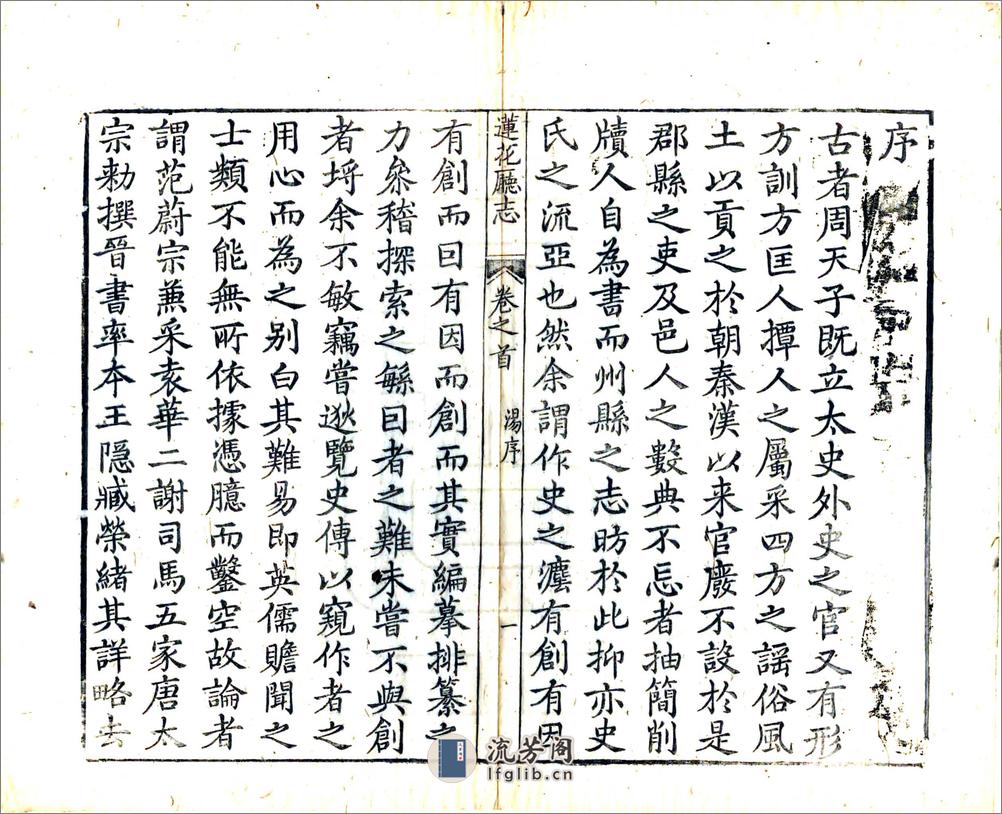 序
古者周天子既立太史外史之官又有形
方訓方匡人撢人之屬采四方之謡俗風
土以貢之於朝秦漢以来官廢不設於是
郡縣之吏及邑人之數典不忘者抽簡削
牘人自為書而州縣之志昉於此抑亦史
氏之流亞也然余謂作史之灋有創有因
蓮花廳志
卷之首
湯序
一
有創而曰有因而創而其實編摹排纂之
力叅稽探索之緐曰者之難未嘗不與創
者埒余不敏竊嘗逖覽史傳以窺作者之
用心而為之别白其難易即英儒贍聞之
士類不能無所依據憑臆而鑿空故論者
謂范蔚宗兼采袁華二謝司馬五家唐太
宗勑撰晉書率本王隠臧榮緒其詳略去
流芳阁
lfglib.cn